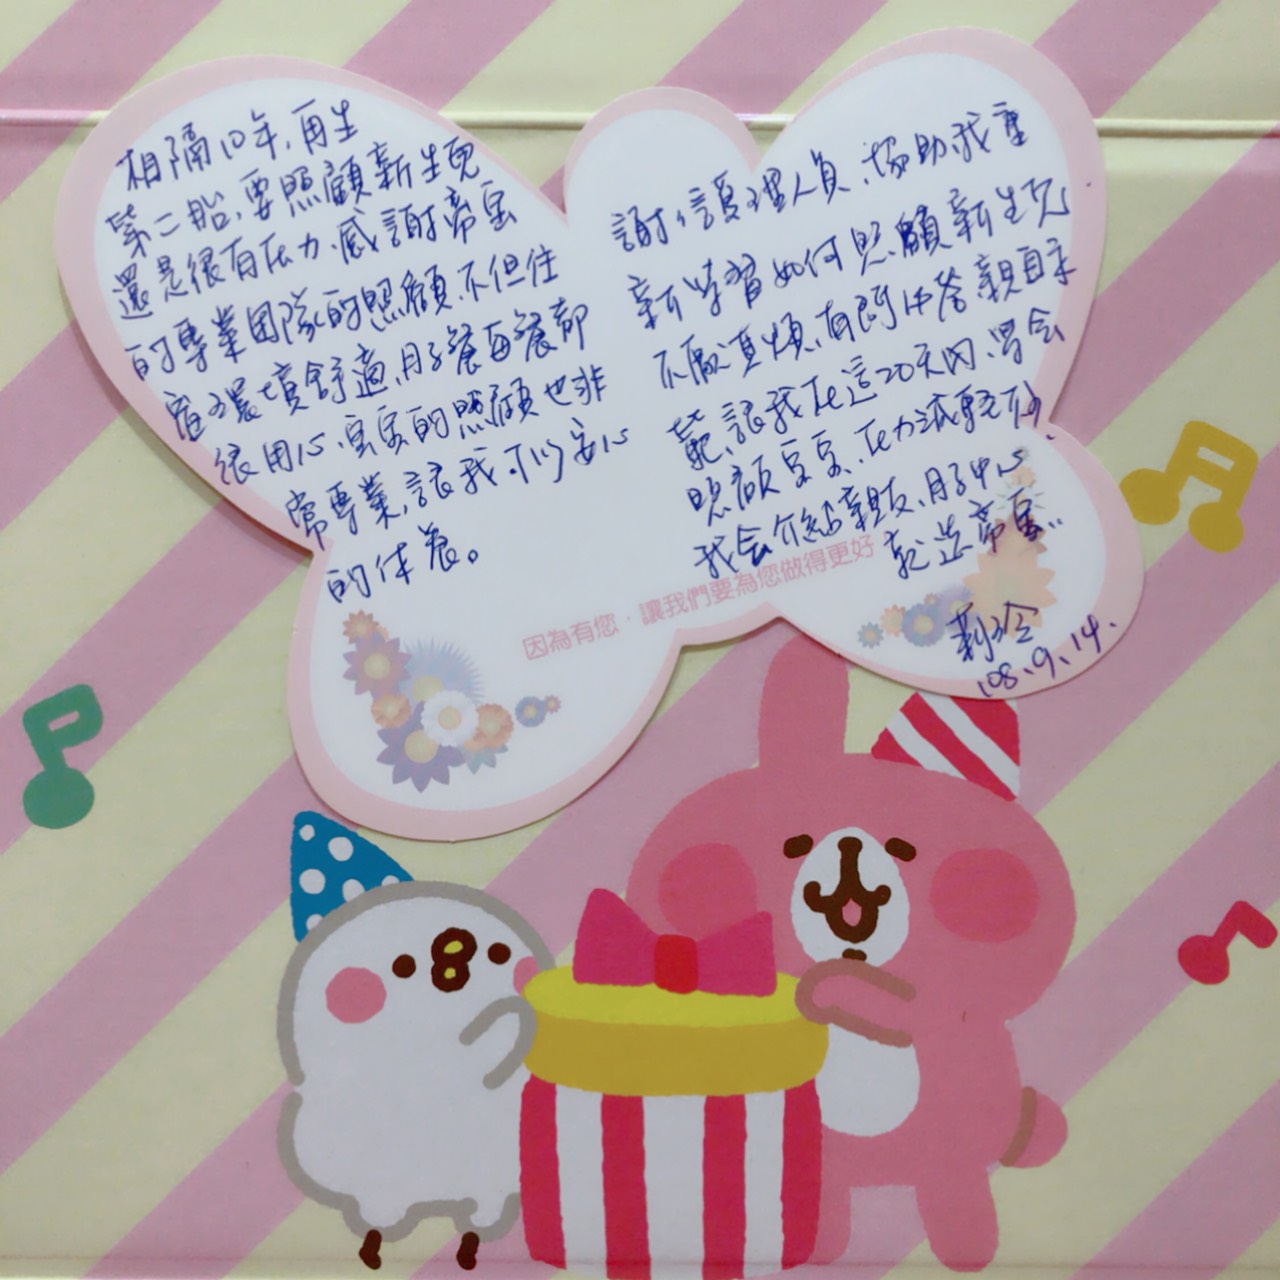 相隔10年,再生
第二胎,要照顧新生兒
還是很有压力.感謝帝宝
的專業团隊的照顧.不但住
宿環境舒適,月子餐每餐都
很用心.宝宝的照顧也非
常專業,讓我可以安心
的休養。
謝謝護理人員.協助我重
新学習如何照顧新生兒
不厭其煩,有問必答親自示
範,讓我在這20天內.學会
照顧宝宝.压力減輕不少.
我会介紹親友.月子中心
就選帝宝..
因為有您·讓我們要為您做得更好
莉玲
108.9.14.